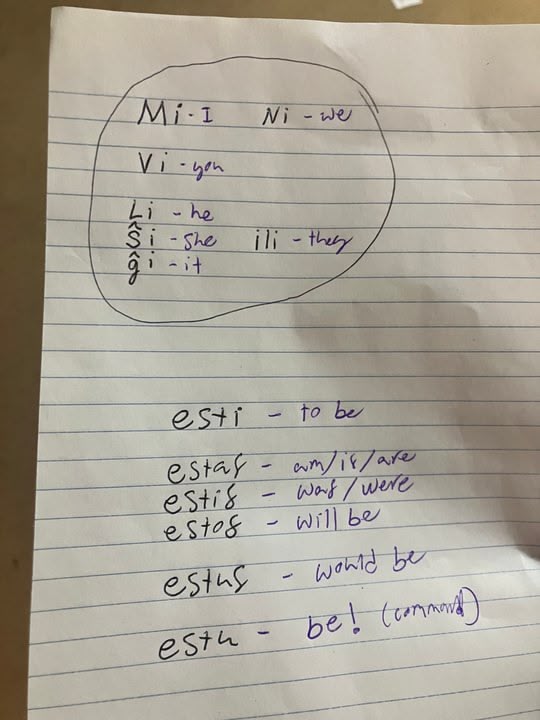 Mi - I Ni - we
Vi - you
Li - he
Ŝi - she ili - they
ĝi - it
esti - to be
estas - am/is/are
estis - was/were
estos - will be
estus - would be
estu - be! (command)